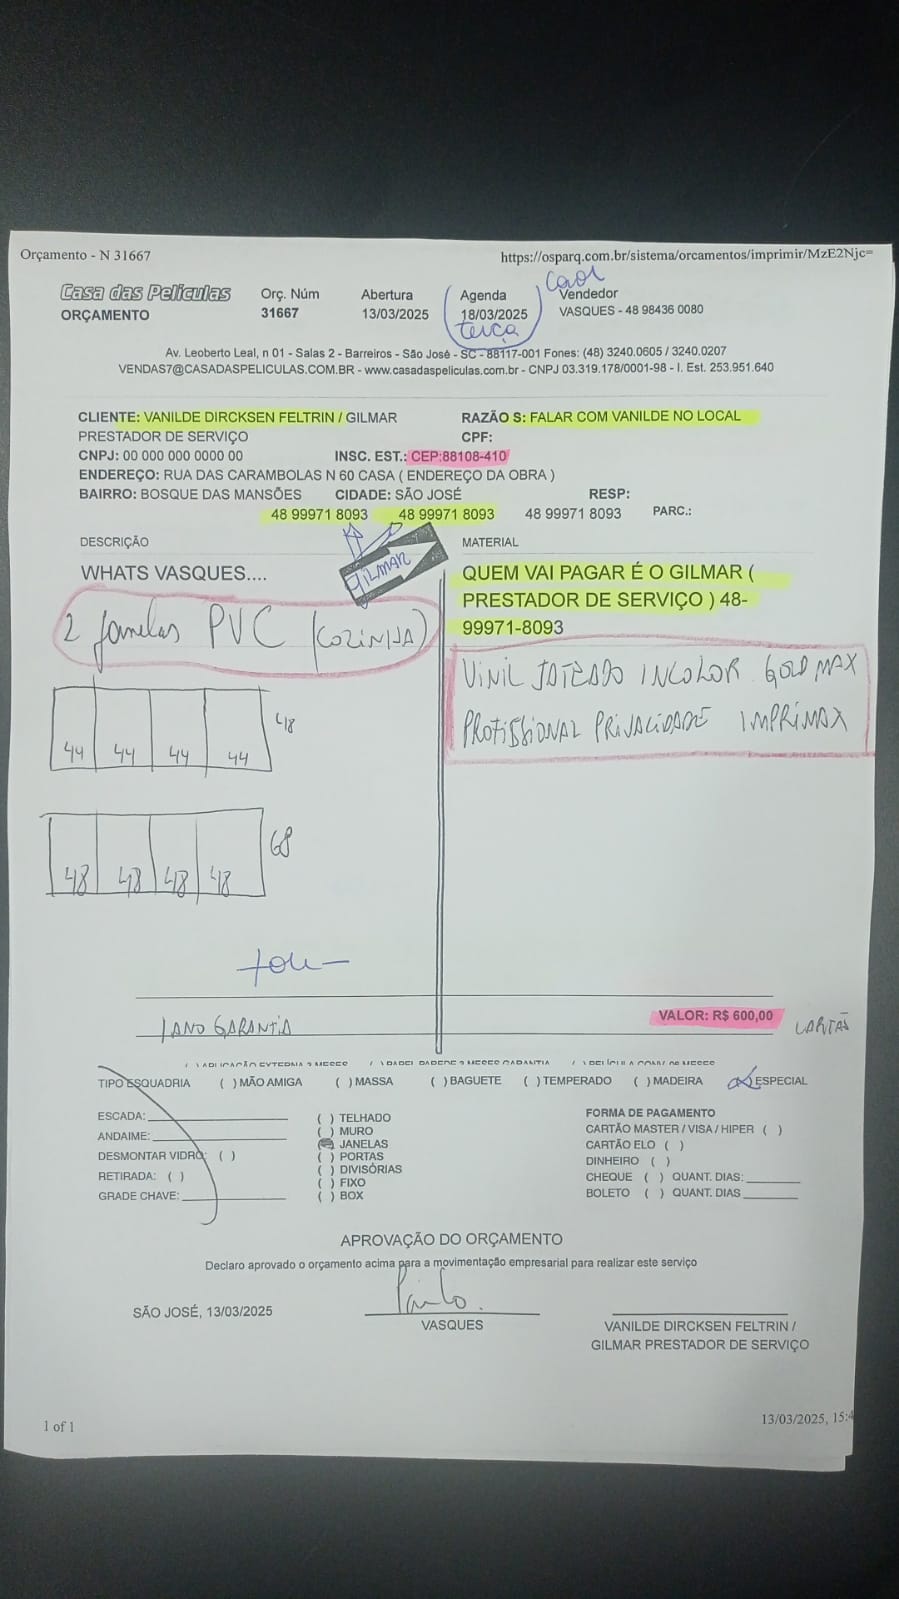 Orçamento - N 31667 https://osparq.com.br/sistema/orcamentos/imprimir/MzE2Njc=
Casa das Películas Orç. Núm Abertura Agenda Vendedor
ORÇAMENTO 31667 13/03/2025 18/03/2025 VASQUES - 48 98436 0080
terça
Av. Leoberto Leal, n 01 - Salas 2 - Barreiros - São José - SC - 88117-001 Fones: (48) 3240.0605 / 3240.0207
VENDAS7@CASADASPELICULAS.COM.BR - www.casadaspeliculas.com.br - CNPJ 03.319.178/0001-98 - I. Est. 253.951.640
CLIENTE: VANILDE DIRCKSEN FELTRIN / GILMAR RAZÃO S: FALAR COM VANILDE NO LOCAL
PRESTADOR DE SERVIÇO CPF:
CNPJ: 00 000 000 0000 00 INSC. EST.: CEP:88108-410
ENDEREÇO: RUA DAS CARAMBOLAS N 60 CASA ( ENDEREÇO DA OBRA )
BAIRRO: BOSQUE DAS MANSÕES CIDADE: SÃO JOSÉ RESP:
48 99971 8093 48 99971 8093 48 99971 8093 PARC.:
GILMAR
DESCRIÇÃO MATERIAL
WHATS VASQUES.... QUEM VAI PAGAR É O GILMAR (
PRESTADOR DE SERVIÇO ) 48-
99971-8093
2 Janelas PVC (COZINHA)
VINIL JATEADO INCOLOR GOLD MAX
PROFISSIONAL PRIVACIDADE IMPRIMAX
48
44 44 44 44
68
48 48 48 48
VALOR: R$ 600,00 CARTÃO
1 ANO GARANTIA
( ) APLICAÇÃO EXTERNA 3 MESES ( ) PAPEL PAREDE 3 MESES GARANTIA
TIPO ESQUADRIA ( ) MÃO AMIGA ( ) MASSA ( ) BAGUETE ( ) TEMPERADO ( ) MADEIRA (X) ESPECIAL
ESCADA: ( ) TELHADO FORMA DE PAGAMENTO
ANDAIME: ( ) MURO CARTÃO MASTER / VISA / HIPER ( )
DESMONTAR VIDRO: ( ) ( ) JANELAS CARTÃO ELO ( )
RETIRADA: ( ) ( ) PORTAS DINHEIRO ( )
GRADE CHAVE: ( ) DIVISÓRIAS CHEQUE ( ) QUANT. DIAS:
( ) FIXO BOLETO ( ) QUANT. DIAS
( ) BOX
APROVAÇÃO DO ORÇAMENTO
Declaro aprovado o orçamento acima para a movimentação empresarial para realizar este serviço
SÃO JOSÉ, 13/03/2025
VASQUES VANILDE DIRCKSEN FELTRIN /
GILMAR PRESTADOR DE SERVIÇO
1 of 1 13/03/2025, 15:4